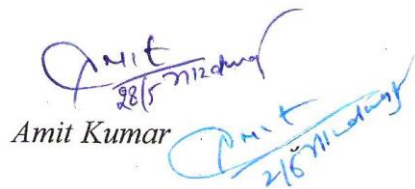 Amit
28/5
Amit Kumar
Amit
2/6